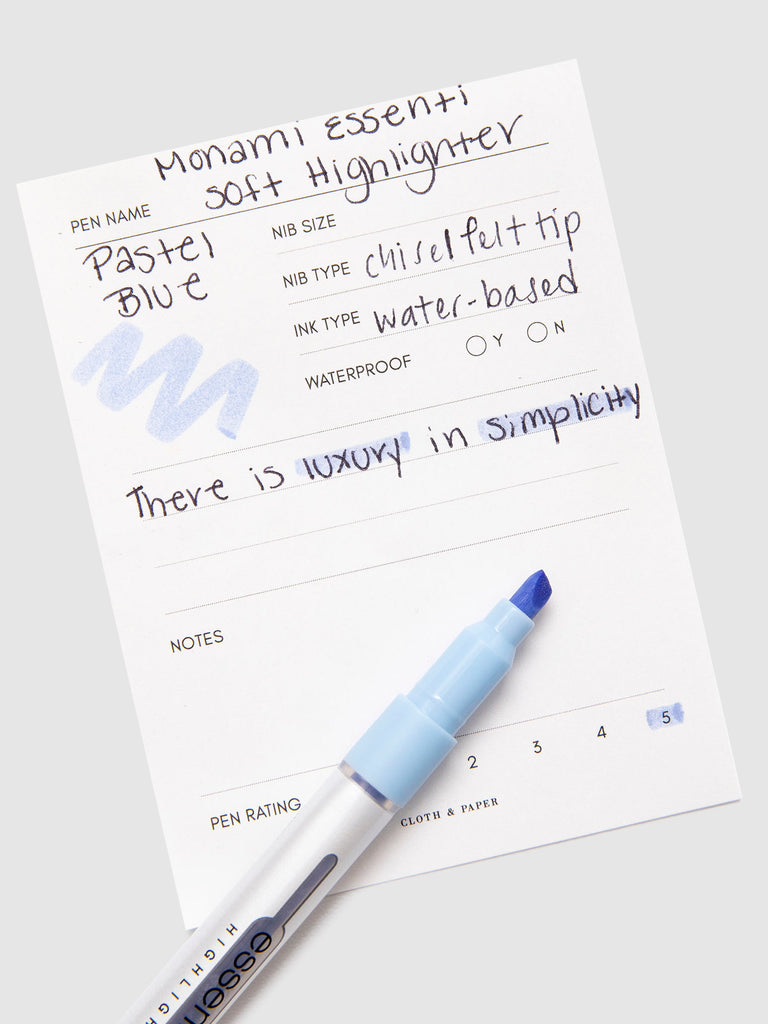 Monami Essenti
Soft Highlighter
PEN NAME
Pastel
Blue
NIB SIZE
NIB TYPE chisel felt tip
INK TYPE water-based
WATERPROOF Y N
There is luxury in simplicity
NOTES
PEN RATING 2 3 4 5
CLOTH & PAPER
essen
HIGHLIGH